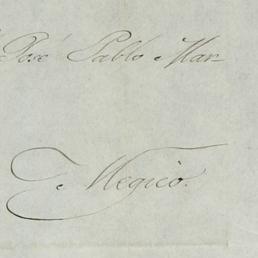 José Pablo Mar-
Megico.